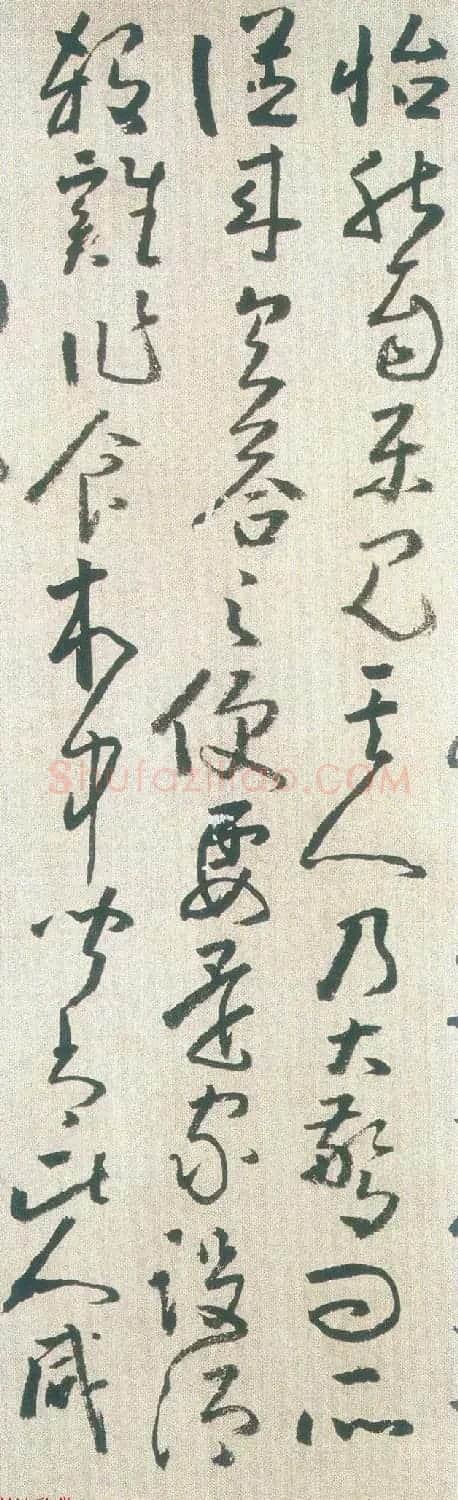 怡然自乐見其人乃大驚問所
從来具答之便要還家設酒
殺雞作食村中聞有此人咸